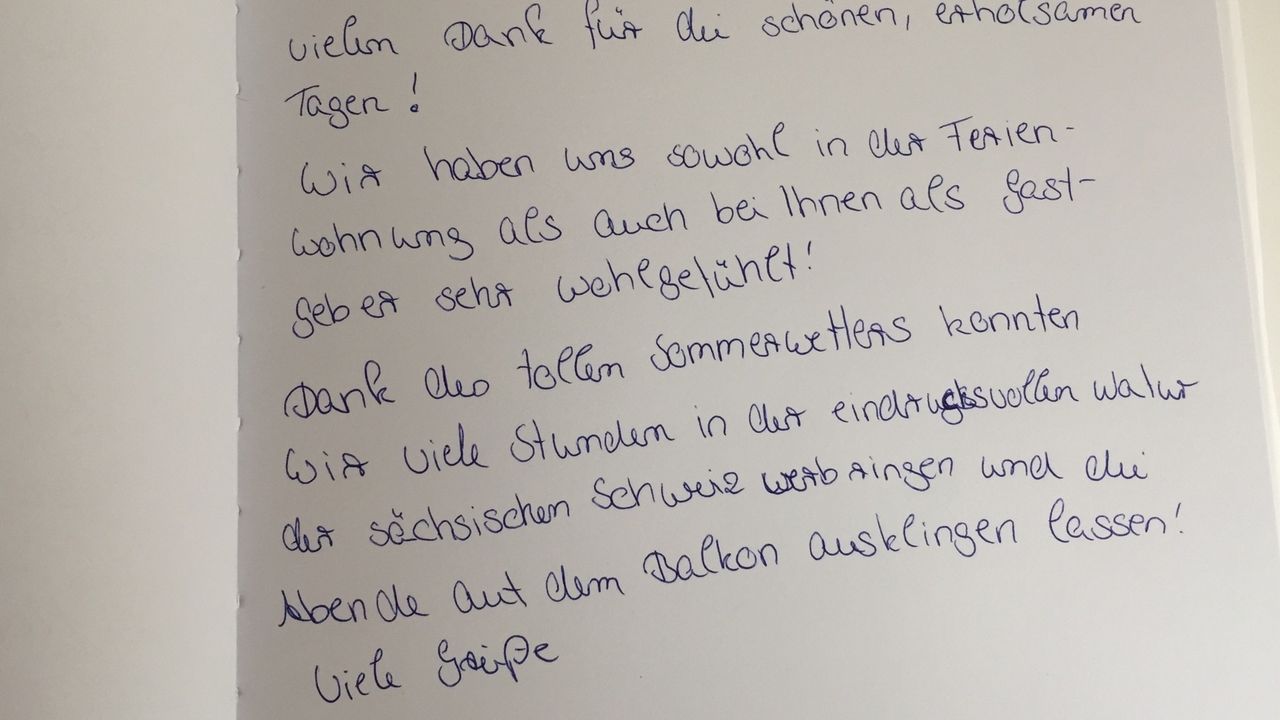 vielen Dank für die schönen, erholsamen
Tagen!
Wir haben uns sowohl in der Ferien-
wohnung als auch bei Ihnen als Gast-
geber sehr wohlgefühlt!
Dank des tollen Sommerwetters konnten
wir viele Stunden in der eindrucksvollen Natur
der sächsischen Schweiz verbringen und die
Abende auf dem Balkon ausklingen lassen!
Viele Grüße